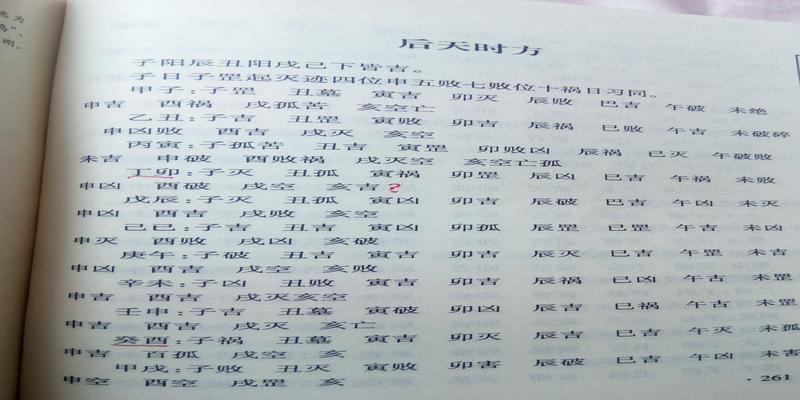 后天时方
子阳辰丑阳戌己下皆吉。
子日子罡起灭迹四位中五败七败位十祸日习同。
甲子:子罡 丑墓 寅吉 卯灭 辰败 巳吉 午破 未绝
申吉 酉祸 戌孤苦 亥空亡
乙丑:子吉 丑罡 寅败 卯吉 辰祸 巳败 午吉 未破碎
申凶败 酉吉 戌灭 亥空
丙寅:子孤苦 丑吉 寅罡 卯败凶 辰祸 巳灭 午破败
未吉 申破 酉败祸 戌灭空 亥空亡孤
丁卯:子灭 丑孤 寅祸 卯罡 辰凶 巳吉 午祸 未败
申凶 酉破 戌空 亥吉?
戊辰:子灭 丑孤 寅凶 卯吉 辰破 巳吉 午凶 未灭
申凶 酉吉 戌败 亥空
己巳:子吉 丑吉 寅凶 卯孤 辰罡 巳罡 午吉 未凶
申灭 酉败 戌凶 亥破
庚午:子破 丑吉 寅吉 卯吉 辰灭 巳吉 午罡 未吉
申凶 酉吉 戌空 亥败
辛未:子凶 丑败 寅吉 卯吉 辰祸 巳凶 午古 未罡
申吉 酉吉 戌灭亥空
壬申:子吉 丑墓 寅破 卯凶 辰吉 巳祸 午古 未罡
申吉 酉吉 戌灭 亥亡
癸酉:子祸 丑墓 寅吉 卯灭 辰吉 巳吉 午灭 未孤
申吉 百孤 戌空 亥
甲戌:子败 丑灭 寅败 卯害 辰破 巳吉 午凶 未害
申空 酉空 戌罡 亥
·261